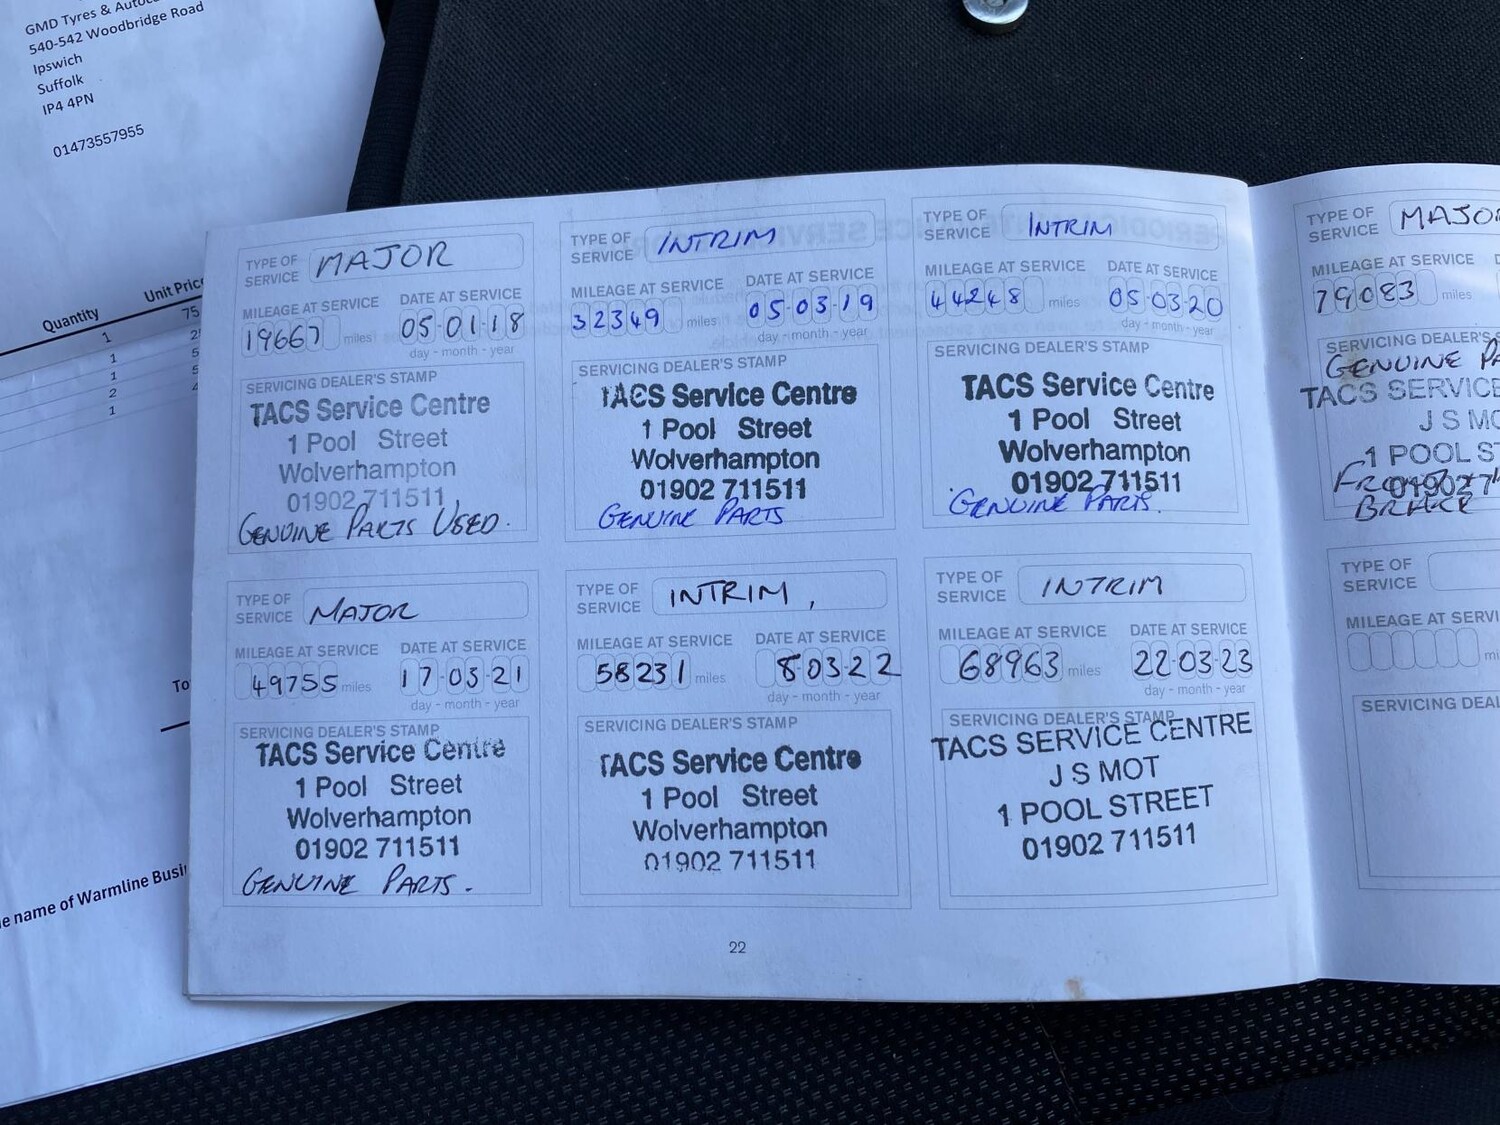 GMD Tyres &
540-542 Woodbridge Road
Ipswich
Suffolk
IP4 4PN
01473557955
Quantity Unit Price
1 75
1
1 5
2
1
To
e name of Warmline Busi
TYPE OF SERVICE MAJOR
MILEAGE AT SERVICE DATE AT SERVICE
19667 miles 05-01-18
day - month - year
SERVICING DEALER'S STAMP
TACS Service Centre
1 Pool Street
Wolverhampton
01902 711511
GENUINE PARTS USED.
TYPE OF SERVICE INTRIM
MILEAGE AT SERVICE DATE AT SERVICE
32349 miles 05-03-19
day - month - year
SERVICING DEALER'S STAMP
TACS Service Centre
1 Pool Street
Wolverhampton
01902 711511
GENUINE PARTS
TYPE OF SERVICE INTRIM
MILEAGE AT SERVICE DATE AT SERVICE
44248 miles 05-03-20
day - month - year
SERVICING DEALER'S STAMP
TACS Service Centre
1 Pool Street
Wolverhampton
01902 711511
GENUINE PARTS.
TYPE OF SERVICE MAJOR
MILEAGE AT SERVICE DATE AT SERVICE
49755 miles 17-03-21
day - month - year
SERVICING DEALER'S STAMP
TACS Service Centre
1 Pool Street
Wolverhampton
01902 711511
GENUINE PARTS.
TYPE OF SERVICE INTRIM,
MILEAGE AT SERVICE DATE AT SERVICE
58231 miles 8-03-22
day - month - year
SERVICING DEALER'S STAMP
TACS Service Centre
1 Pool Street
Wolverhampton
01902 711511
TYPE OF SERVICE INTRIM
MILEAGE AT SERVICE DATE AT SERVICE
68963 miles 22-03-23
day - month - year
SERVICING DEALER'S STAMP
TACS SERVICE CENTRE
J S MOT
1 POOL STREET
01902 711511
22
TYPE OF SERVICE MAJO
MILEAGE AT SERVICE D
79083 miles
SERVICING DEALER'S
GENUINE PA
TACS SERVICE
J S MO
1 POOL ST
FRONT
01902 7
BRAKE
TYPE OF SERVICE
MILEAGE AT SERVI
mi
SERVICING DEAL